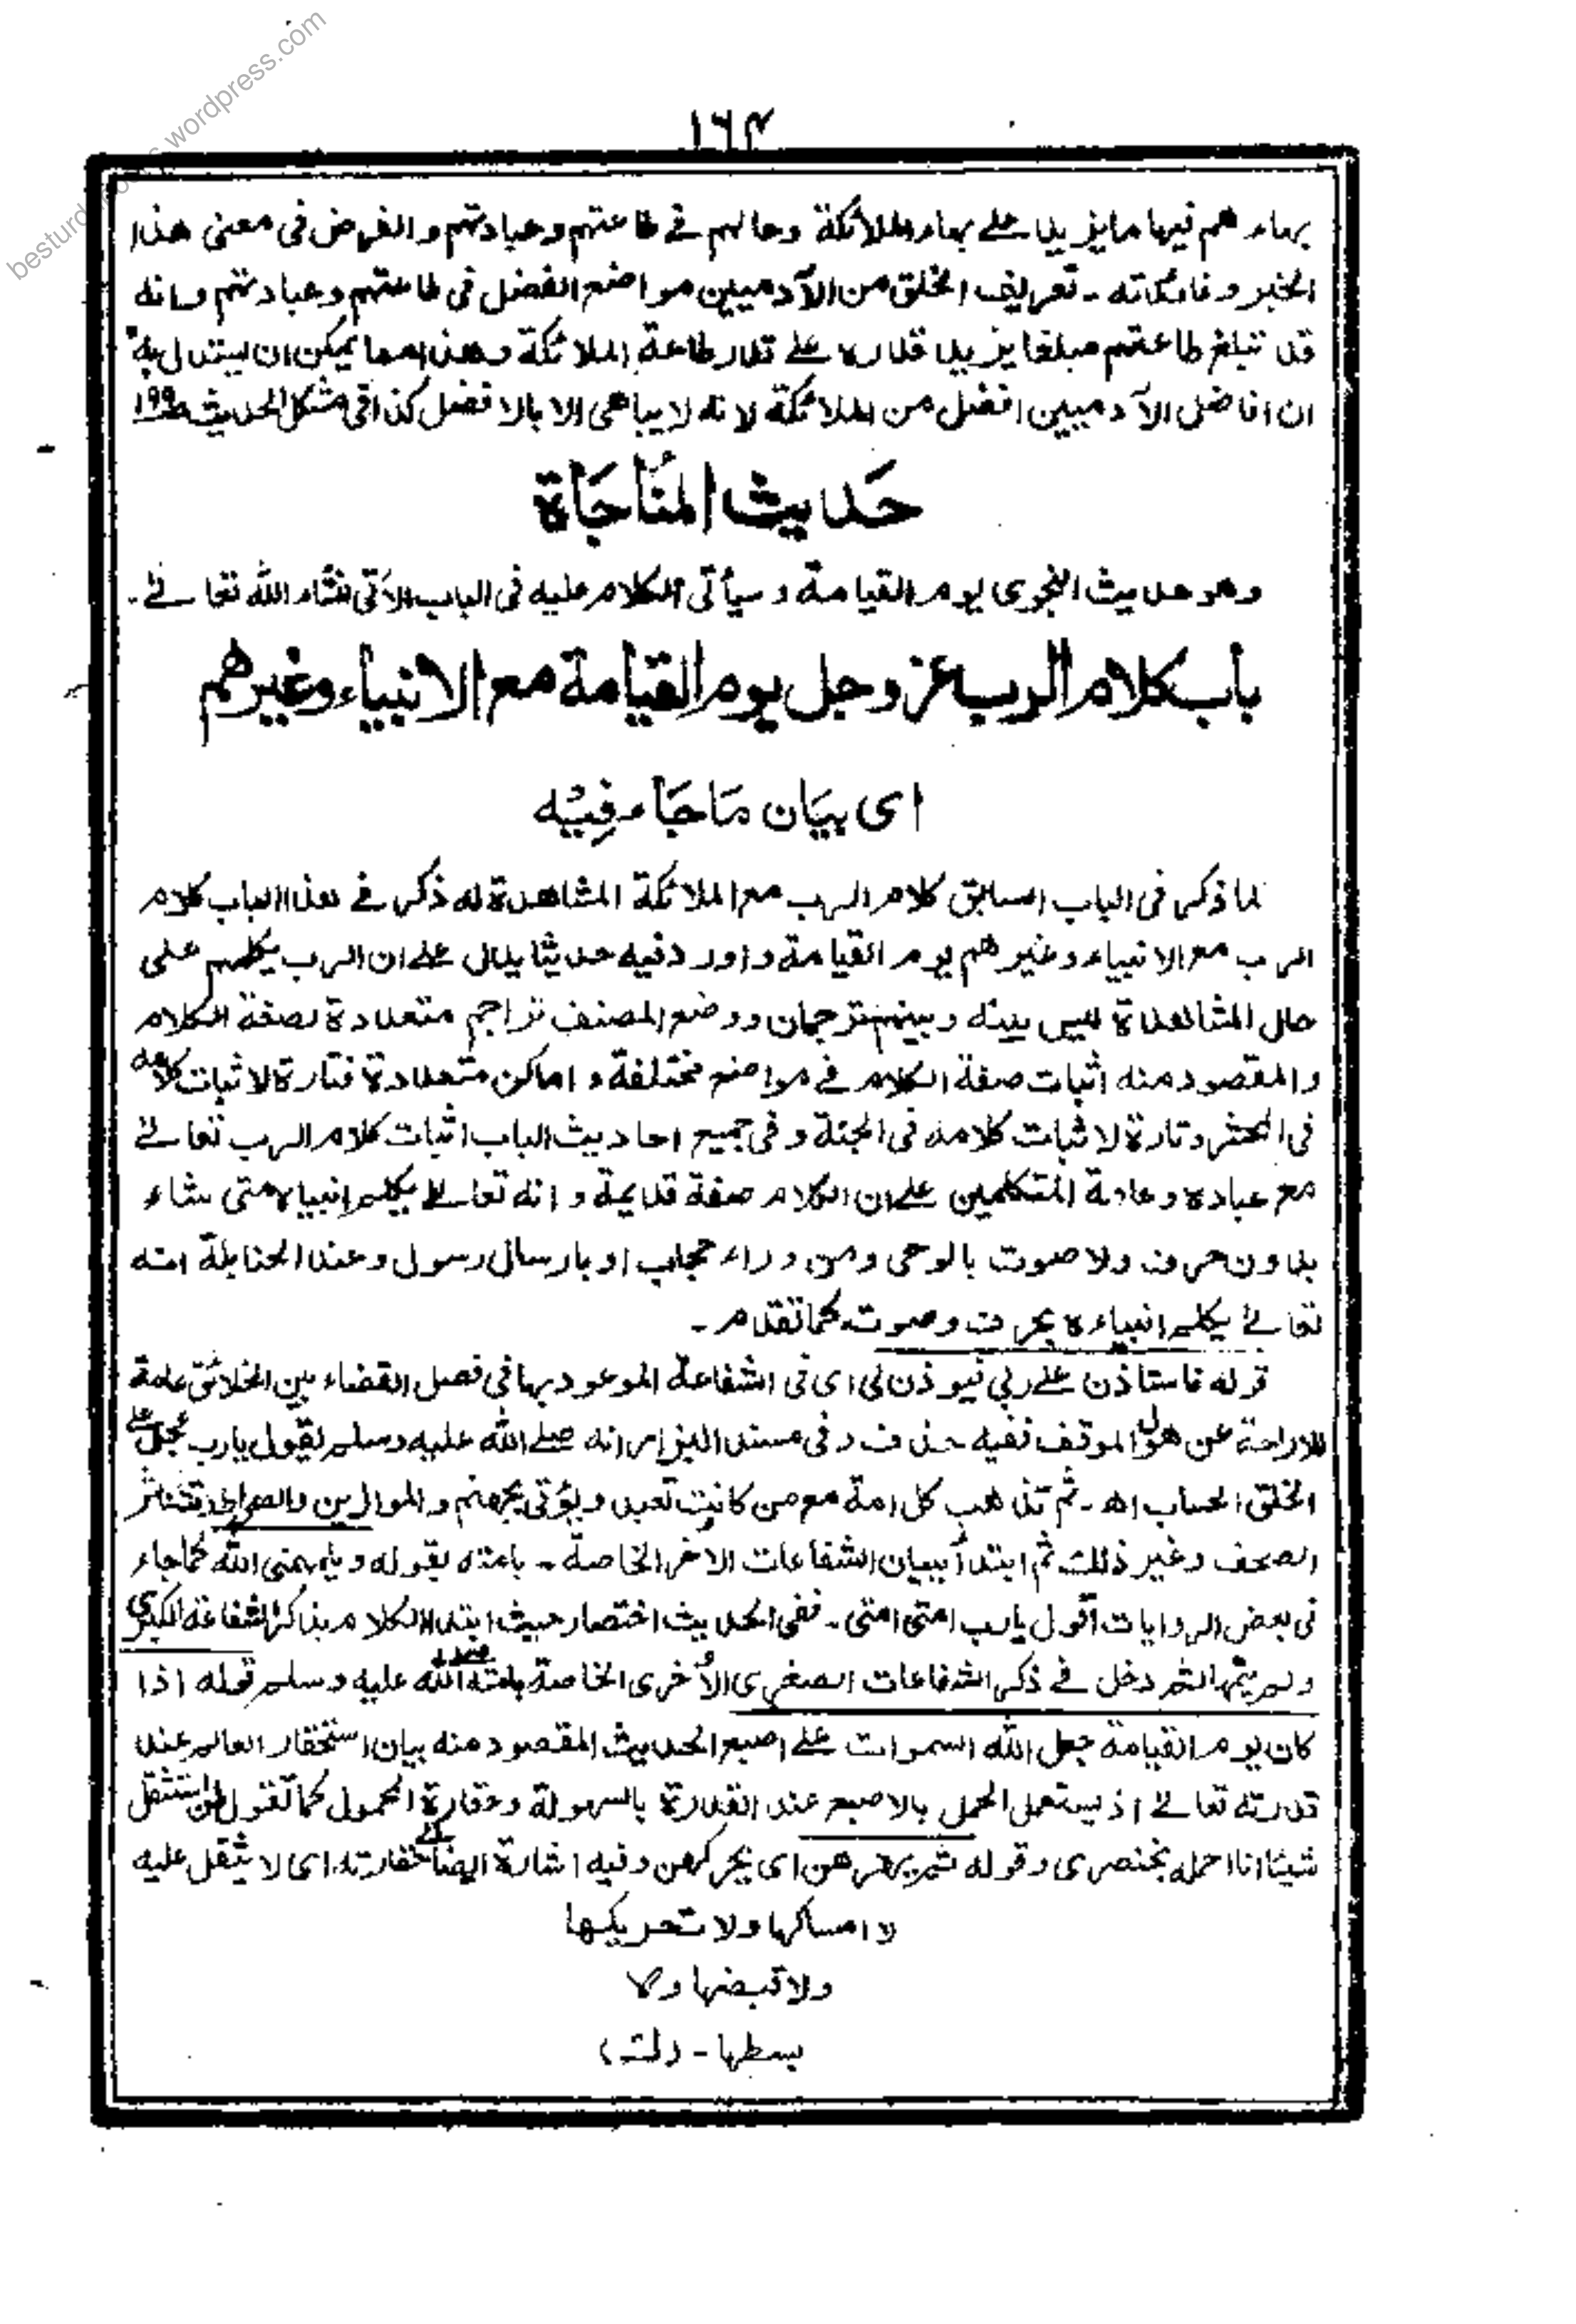 besturdubooks.wordpress.com
۱۶۴
بهاءهم فيها مايزيد على بهاء الملائكة وحالهم فى طاعتهم وعبادتهم والغرض فى معنى هذا
الخبر وفائدته ۔ تعريف الخلق من الآدميين مواضع الفضل فى طاعتهم وعبادتهم وانه
قد تبلغ طاعتهم مبلغا يزيد قدره على قدر طاعة الملائكة وهذا مما يمكن ان يستدل به
ان افاضل الآدميين افضل من الملائكة لانه لا يباهى الا بالافضل كذا فى مشكل الحديث ص۱۹۹
حَديث المنَاجَاة
وهو حديث النجوى يوم القيامة وسيأتى الكلام عليه فى الباب الآتى انشاء الله تعالى ۔
باب كلام الرب عز وجل يوم القيامة مع الانبياء وغيرهم
اى بيَان مَا جَاء فِيْه
لما ذكر فى الباب السابق كلام الرب مع الملائكة المشاهدة له ذكر فى هذا الباب كلام
الرب مع الانبياء وغيرهم يوم القيامة واورد فيه حديثا يدل على ان الرب يكلمهم على
حال المشاهدة ليس بينه وبينهم ترجمان ووضع المصنف تراجم متعددة لصفة الكلام
والمقصود منه اثبات صفة الكلام فى مواضع مختلفة واماكن متعددة فتارة لاثبات كلامه
فى المحشر وتارة لاثبات كلامه فى الجنة وفى جميع احاديث الباب اثبات كلام الرب تعالى
مع عباده وعامة المتكلمين على ان الكلام صفة قديمة وانه تعالى يكلم انبياءه متى شاء
بدون حرف ولا صوت بالوحى ومن وراء حجاب او بارسال رسول وعند الحنابلة انه
تعالى يكلم انبياءه بحرف وصوت كما تقدم ۔
قوله فاستاذن على ربى فيوذن لى اى فى الشفاعة الموعود بها فى فصل القضاء بين الخلائق عامة
للاراحة عن هول الموقف ففيه حذف وفى مسند البزار انه صلى الله عليه وسلم يقول يارب عجل على
الخلق الحساب اه ۔ ثم تذهب كل امة مع من كانت تعبد ويؤتى بجهنم والموازين والصراط وتتناثر
الصحف وغير ذلك ثم ابتدأ ببيان الشفاعات الاخر الخاصة ۔ بامته بقوله ويلهمنى الله كما جاء
فى بعض الروايات اقول يارب امتى امتى ۔ ففى الحديث اختصار حيث ابتدا الكلام بذكر الشفاعة الكبرى
ولم يتمها ثم دخل فى ذكر الشفاعات الصغرى الأخرى الخاصة بامته صلى الله عليه وسلم قوله اذا
كان يوم القيامة جعل الله السموات على اصبع الحديث المقصود منه بيان استحقار العالم عند
قدرته تعالى اذ يستعمل الحمل بالاصبع عند القدرة بالسهولة وحقارة المحمول كما تقول لمن استثقل
شيئا انا احمله بخنصرى وقوله ثم يهزهن اى يحركهن وفيه اشارة ايضا الى حقارته اى لا يثقل عليه
لا امساكها ولا تحريكها
ولا قبضها ولا
بسطها ۔ (ك)